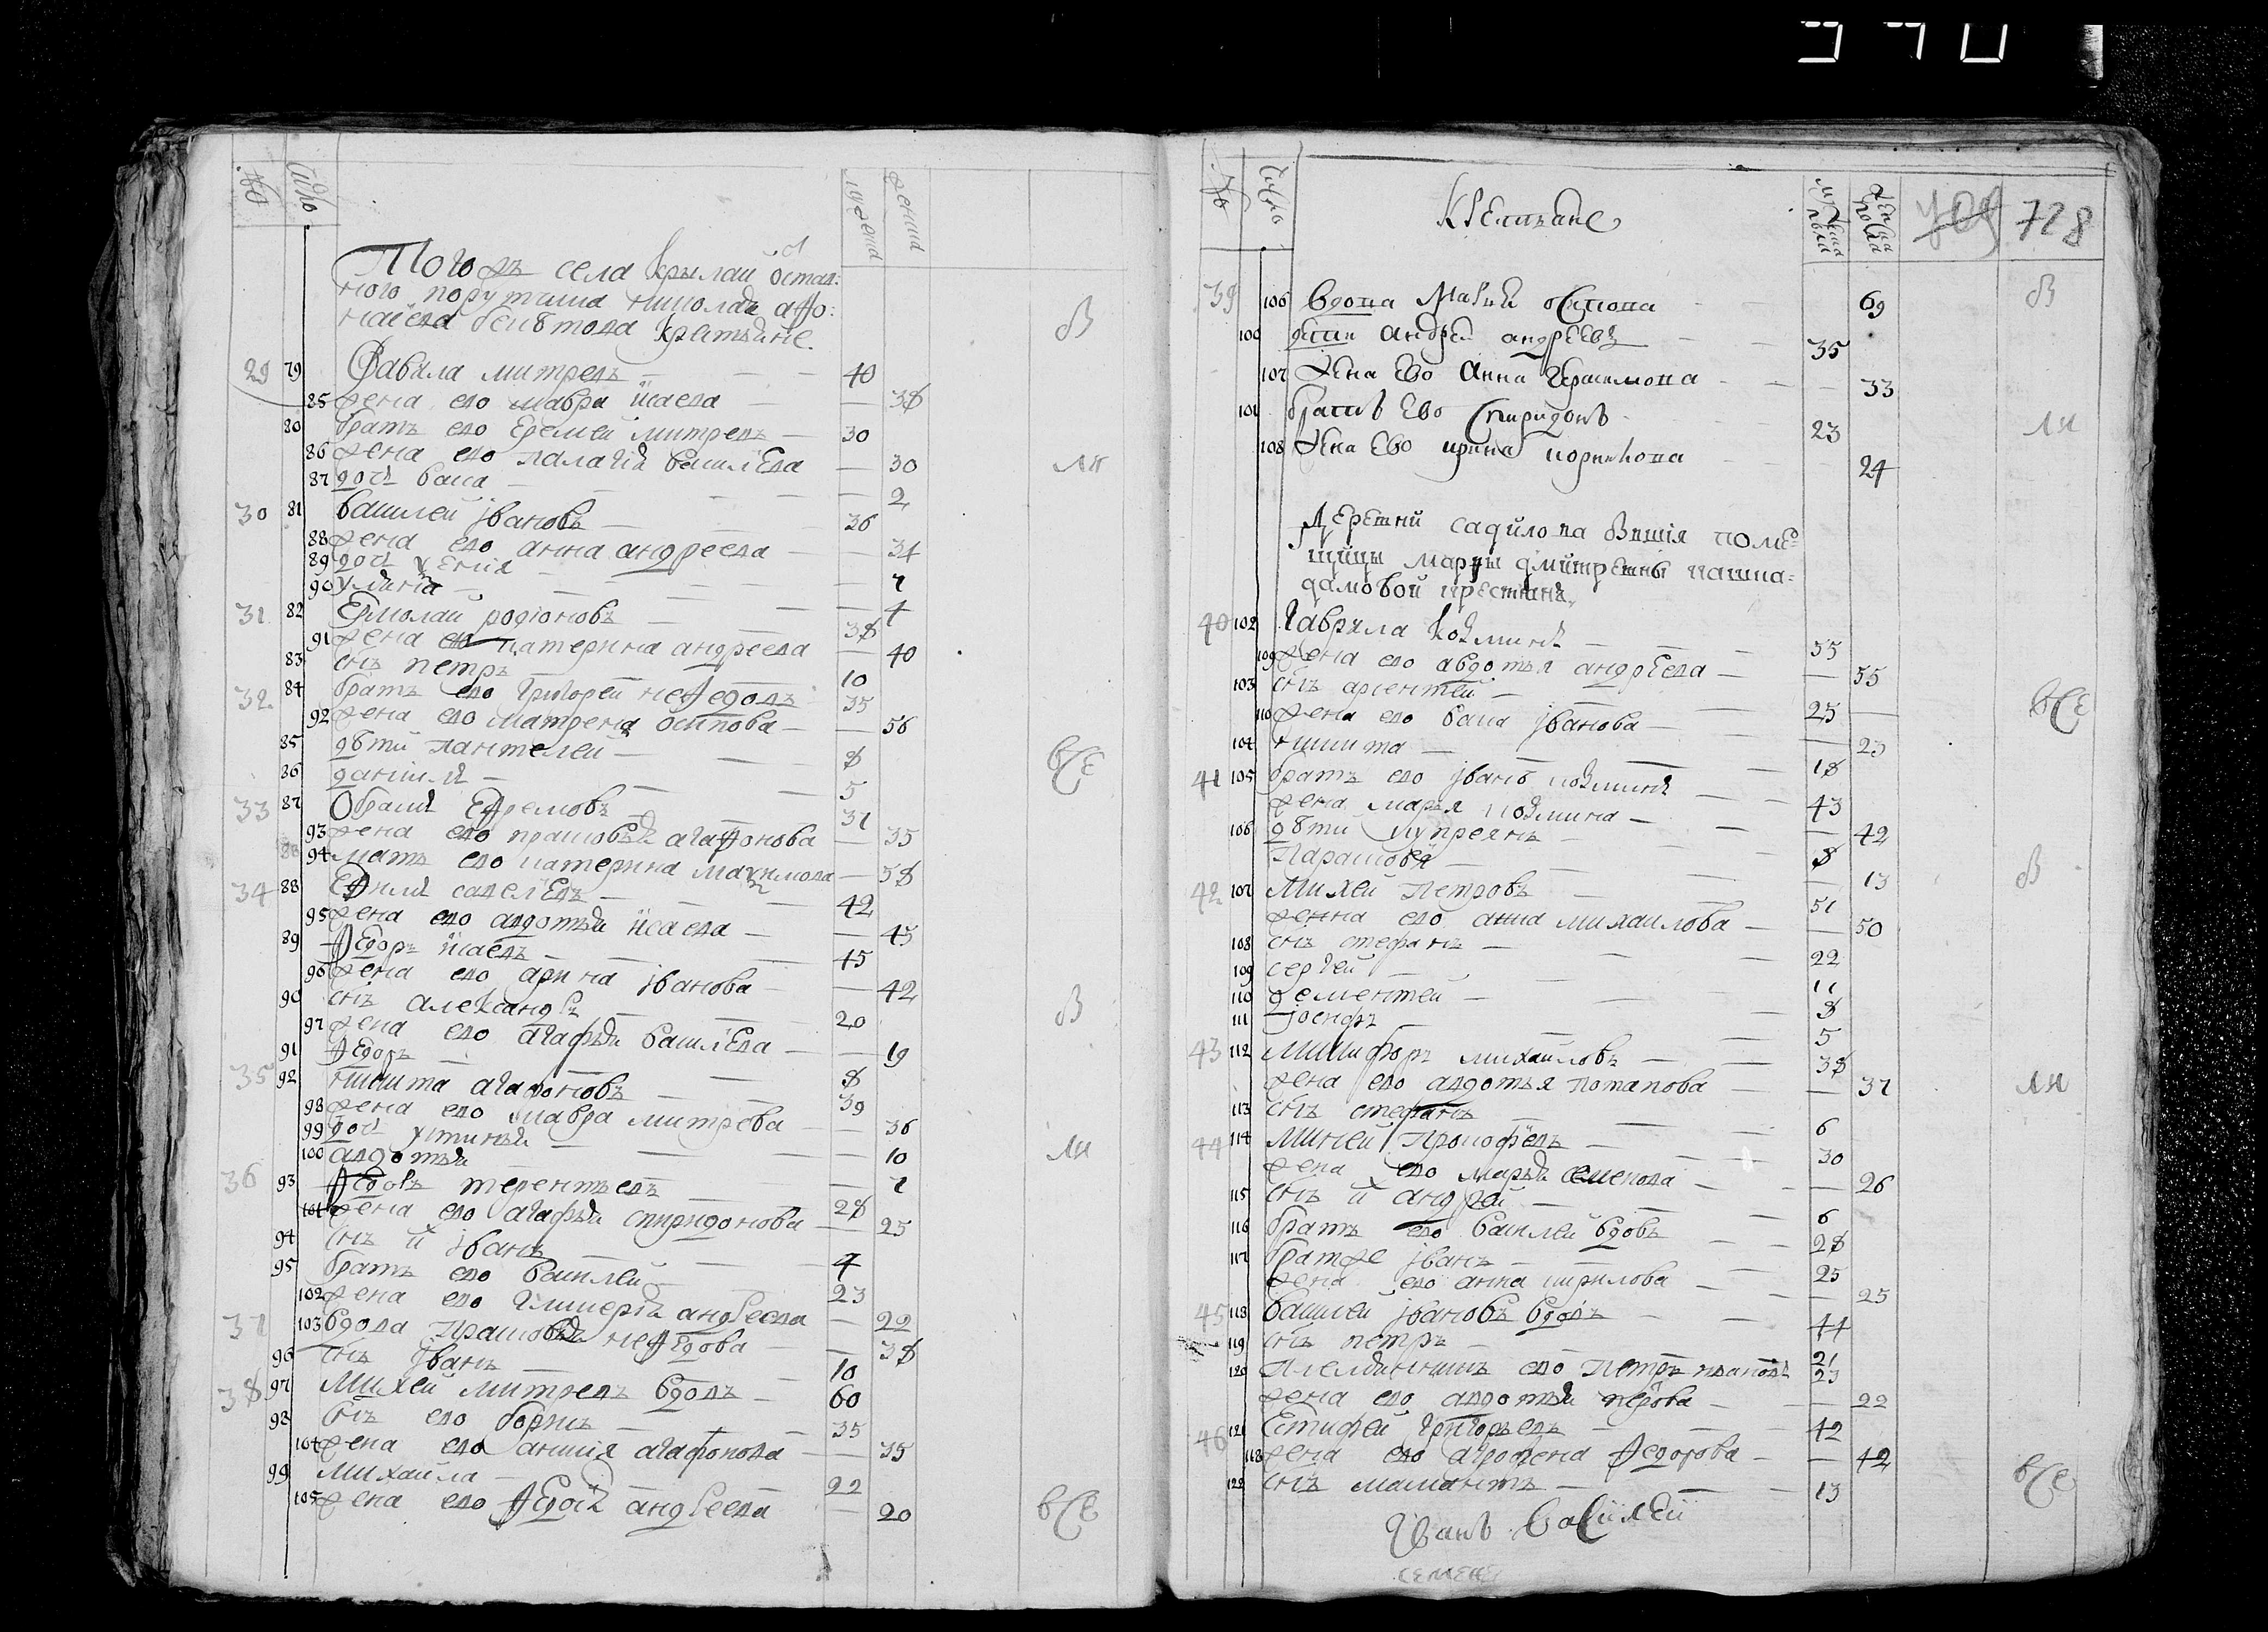 Тогожъ села крылай отстав:
ного порутчика николая афо:
насева бекѣтова крестьяне.
29 79 Гаврила митревъ — 40
85 жена ево мавра исаева — 38
80 братъ ево Еремей митревъ — 30
86 жена ево палагѣя васильева — 30
87 дочь васа — 2
30 81 василей Ивановъ — 36
88 жена ево анна андреева — 34
89 дочь — 7
90 улияна — 4
31 82 Ермолай родионовъ — 38
91 жена ево катерина андреева — 40
83 снъ петръ — 10
32 84 братъ ево Григорей нефедовъ 35
92 жена ево матрена осипова — 56
85 дѣти пантелей — 8
86 данила — 5
33 87 Абрамъ Ефремовъ 31
93 жена ево прасковья агафонова — 35
94 мать ево катерина максимова — 58
34 88 Ефимъ савелевъ — 42
95 жена ево авдотья исаева — 45
89 Федоръ исаевъ — 45
96 жена ево арина Иванова — 42
90 снъ александръ 20
97 жена ево агафья васильева — 19
91 Федоръ — 8
35 92 никита агафоновъ 39
98 жена ево мавра митрева — 36
99 дочь устинья — 10
100 авдотья — 7
36 93 Федоръ терентьевъ 28
101 жена ево агафья спиридонова — 25
94 снъ й Иванъ — 4
95 братъ ево василей 23
102 жена ево гликерья андреева — 22
37 103 вдова прасковья нефедова — 38
96 снъ Иванъ 10
38 97 Михей митревъ вдовъ — 60
98 снъ ево борисъ 35
104 жена ево анисия агафонова — 35
99 михайла — 22
105 жена ево андреева — 20
в
ли
все
в
ли
все
Крестьяне
728
39 106 вдова осипова — 69
100 дети андрей андреевъ — 35
107 жена Ево анна герасимова — 33
101 братъ Ево Спиридонъ — 23
108 жена Ево ирина корнилова — 24
Деревни садилова вышия поме=
щицы марьи дмитревны кашка=
дамовой крестьянъ
40 102 Гаврила козминъ — 55
109 жена ево авдотья андреева — 55
103 снъ арсентей — 25
110 жена ево васа Иванова — 23
104 никита — 18
41 105 братъ ево Иванъ козминъ 43
жена марья козмина — 42
106 дѣти купреянъ — 8
парасковья — 13
42 107 Михей петровъ 51
жена ево анна михаилова — 50
108 снъ стефанъ — 22
109 сергей — 11
110 дементей — 8
111 Иосифъ 5
43 112 Никифоръ михайловъ — 38
жена ево авдотья потапова — 37
113 снъ стефанъ 6
44 114 Михей прокофьевъ — 30
жена ево марья семенова — 26
115 снъ й андрей — 6
116 братъ ево василей вдовъ 28
117 братже Иванъ — 25
жена ево анна кирилова — 25
45 118 василей Ивановъ вдовъ — 44
119 снъ петръ 21
120 племянникъ ево петръ ивановъ 23
жена ево авдотья — 22
46 121 Григорьевъ — 42
118 жена ево агрофена Федорова — 42
122 снъ мамонтъ — 13
Иванъ Василей
семенъ
в
ли
все
в
ли
все